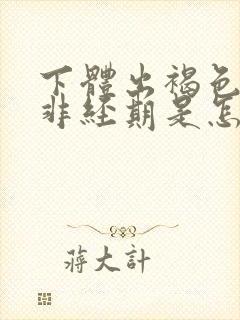 下體出褐色
非經期是怎
蔣大計